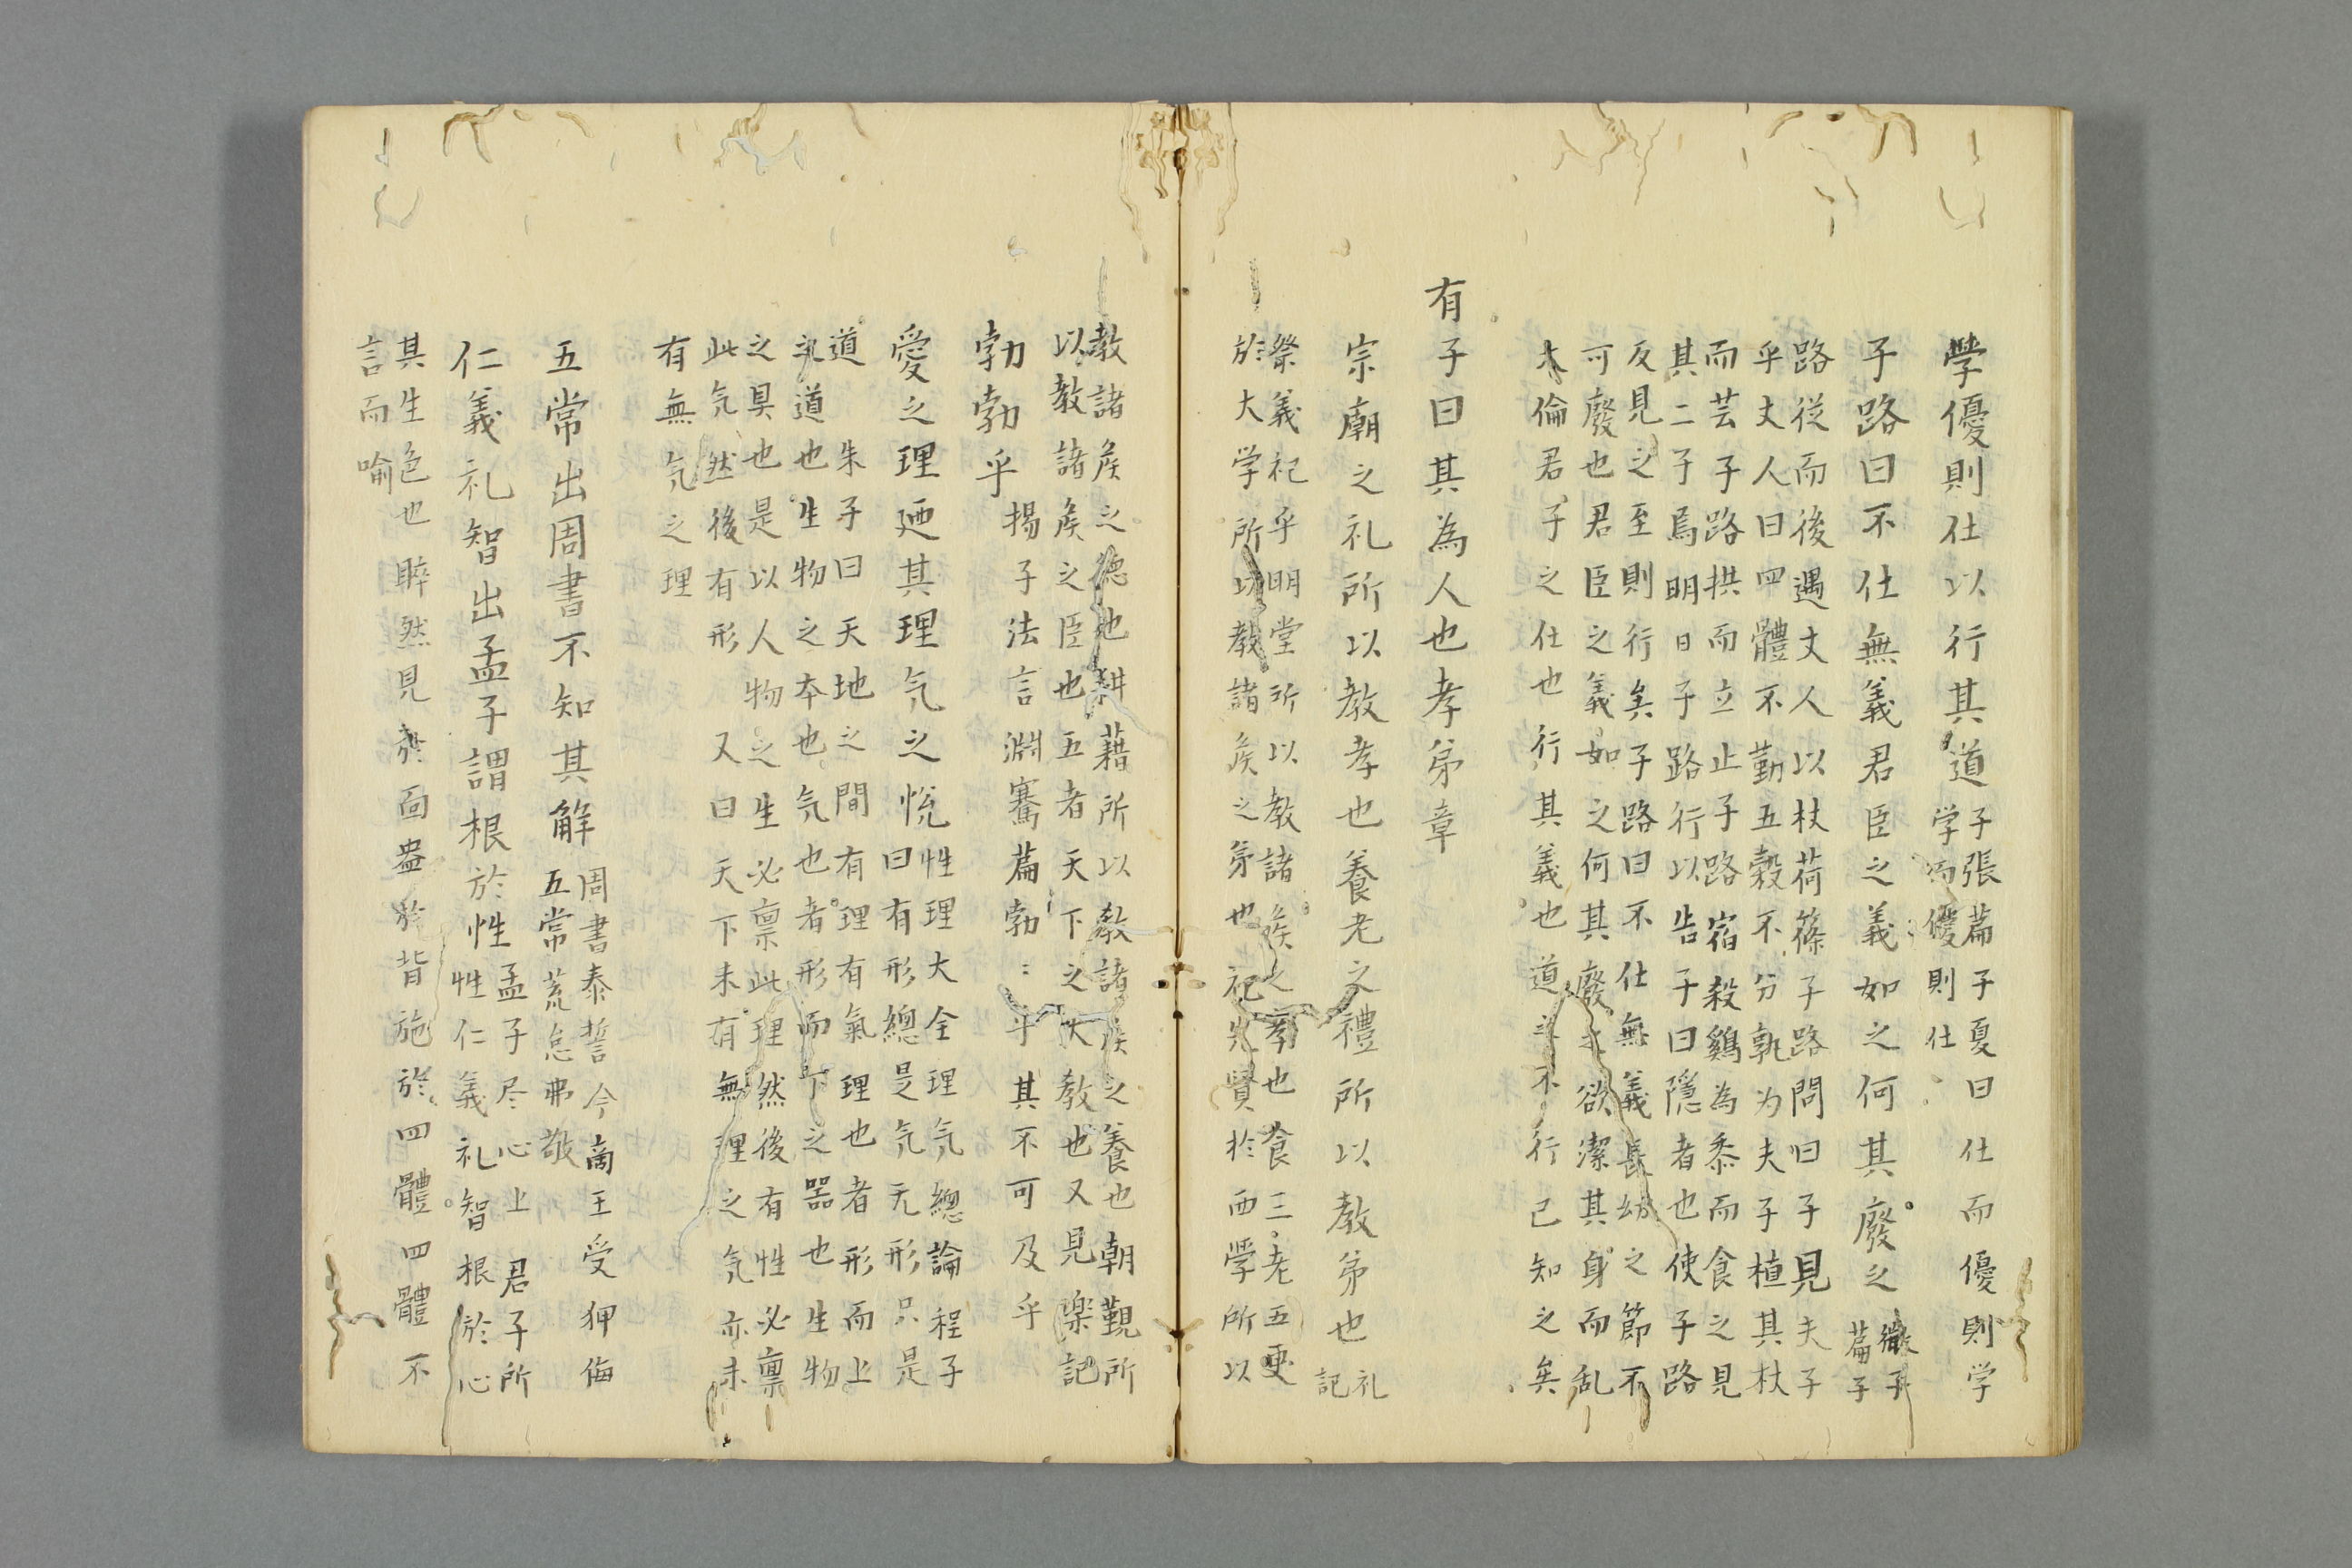 學優則仕以行其道 子張篇子夏曰仕而優則学
学而優則仕
子路曰不仕無義君臣之義如之何其廢之 微子
篇子
路從而後遇丈人以杖荷篠子路問曰子見夫子
乎丈人曰四體不勤五穀不分孰为夫子植其杖
而芸子路拱而立止子路宿殺鷄為黍而食之見
其二子焉明日子路行以告子曰隱者也使子路
反見之至則行矣子路曰不仕無義長幼之節不
可廢也君臣之義如之何其廢之欲潔其身而乱
大倫君子之仕也行其義也道之不行已知之矣
有子曰其為人也孝弟章
宗廟之礼所以教孝也養老之禮所以教弟也 礼
記
祭義祀乎明堂所以教諸侯之孝也食三老五更
於大学所以教諸侯之弟也祀先賢於西學所以
教諸侯之德也耕藉所以教諸侯之養也朝覲所
以教諸侯之臣也五者天下之大教也又見楽記
勃勃乎 揚子法言淵騫篇勃〻乎其不可及乎
愛之理廼其理気之悦 性理大全理気 總論 程子
曰有形總是気无形只是
道 朱子曰 天地之間有理有氣理也者形而上
之道也生物之本也気也者形而下之器也生物
之具也是以人物之生必禀此理然後有性必禀
此気然後有形 又曰 天下未有無理之気亦未
有無気之理
五常出周書不知其解 周書泰誓今商王受狎侮
五常荒怠弗敬
仁義礼智出孟子謂根於性 孟子尽心上 君子所
性仁義礼智根於心
其生色也睟然見於面盎於背施於四體四體不
言而喻